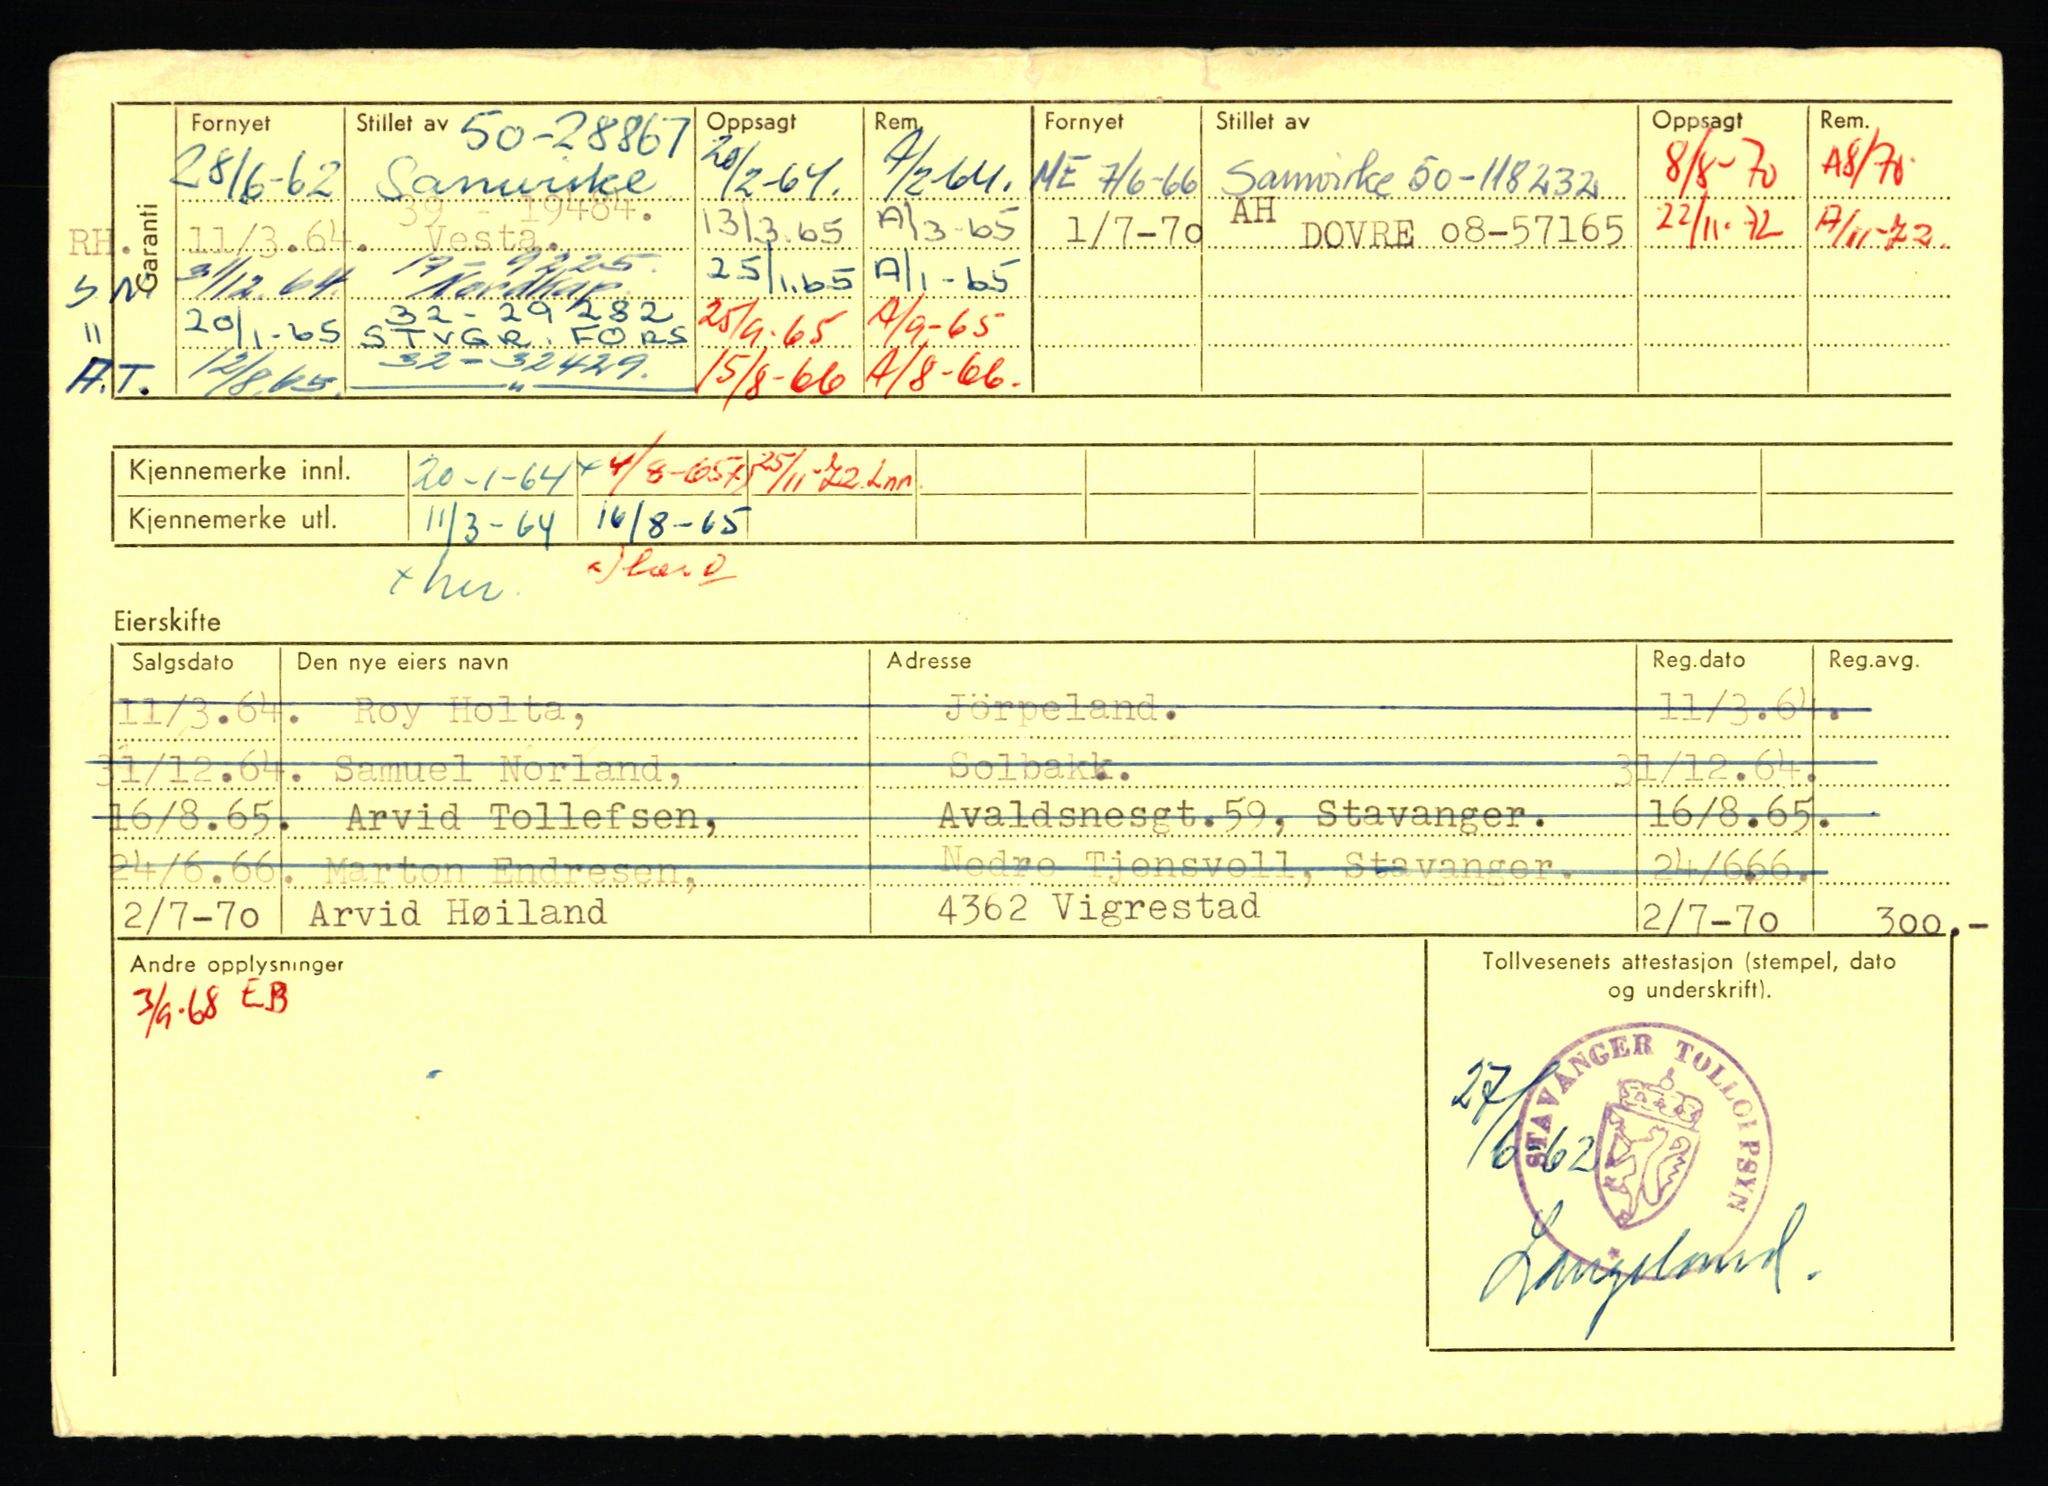 Garanti
Fornyet Stillet av 50-28867 Oppsagt Rem. Fornyet Stillet av Oppsagt Rem.
28/6-62 Samvirke 20/2-64. A/2-64. ME 7/6-66 Samvirke 50-118232 8/8-70 A8/70.
39 - 19484.
RH. 11/3.64. Vesta. 13/3.65 A/3-65 1/7-70 AH DOVRE 08-57165 22/11-72 A/11-72.
17-9225.
SN 31/12.64. Nordkap. 25/1.65 A/1-65
32-29282
" 20/1-65 STVGR. FORS 25/9.65 A/9-65
32-32429.
A.T. 12/8.65. " 15/8-66 A/8-66.
Kjennemerke innl. 20-1-64 x 4/8-65 x) 25/11-72 Inn.
Kjennemerke utl. 11/3-64 16/8-65
x her.
Eierskifte
Salgsdato Den nye eiers navn Adresse Reg.dato Reg.avg.
11/3.64. Roy Holta, Jörpeland. 11/3.64.
31/12.64. Samuel Norland, Solbakk. 31/12.64.
16/8.65. Arvid Tollefsen, Avaldsnesgt.59, Stavanger. 16/8.65.
24/6.66. Marton Endresen, Nedre Tjensvoll, Stavanger. 24/666.
2/7-70 Arvid Høiland 4362 Vigrestad 2/7-70 300.-
Andre opplysninger
3/9.68 EB
Tollvesenets attestasjon (stempel, dato
og underskrift).
STAVANGER TOLLOPPSYN
27/6 62
Langeland.